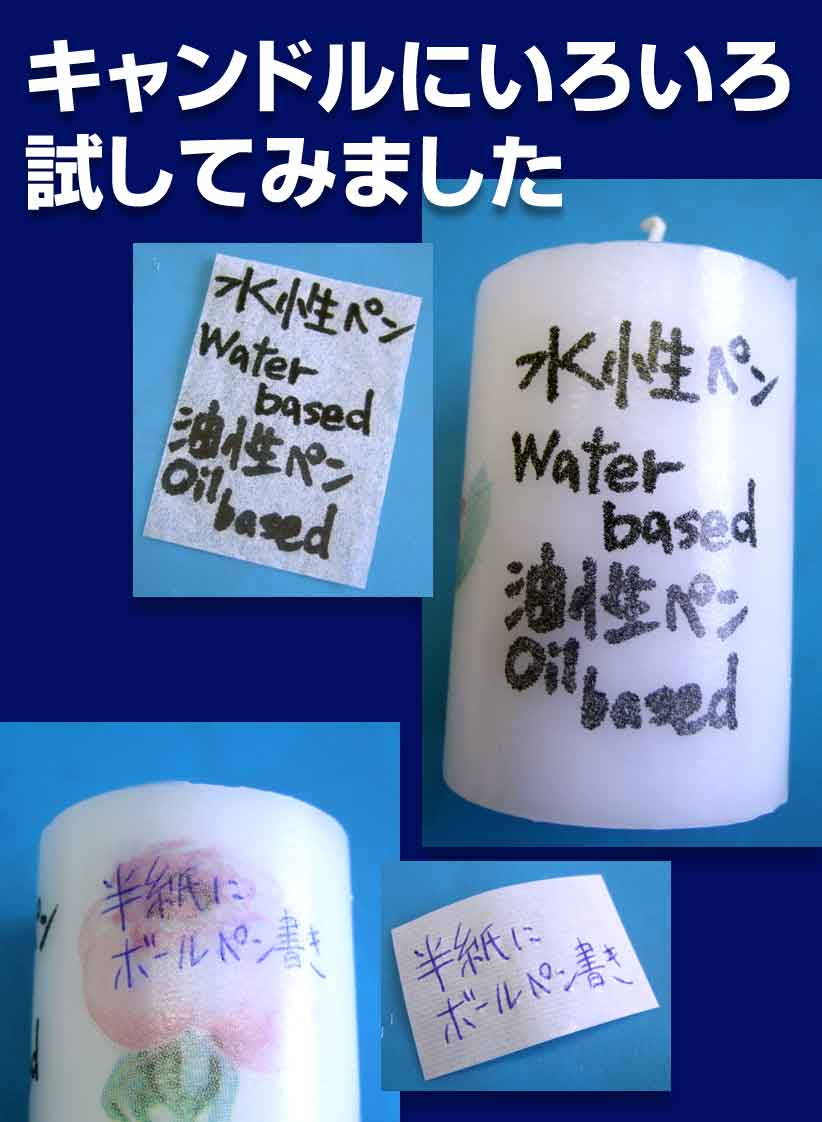 キャンドルにいろいろ
試してみました
水性ペン
Water
based
油性ペン
Oil
based
水性ペン
Water
based
油性ペン
Oil
based
半紙に
ボールペン書き
半紙に
ボールペン書き